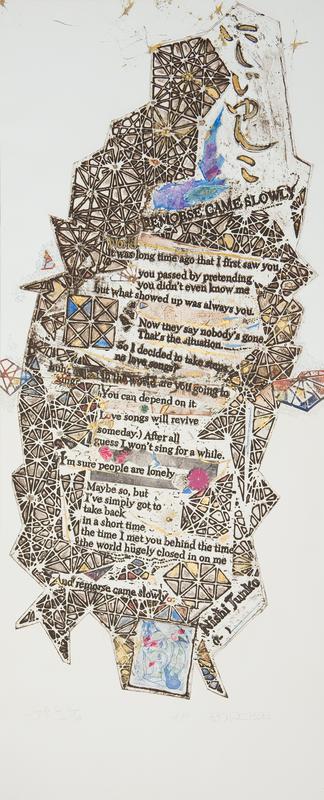 にしじゅんこ
REMORSE CAME SLOWLY
It was long time ago that I first saw you,
you passed by pretending
you didn't even know me
but what showed up was always you.
Now they say nobody's gone.
That's the situation.
So I decided to take steps,
no love songs!
in the world are you going to
sing
You can depend on it.
Love songs will revive
someday.) After all
guess I won't sing for a while.
I'm sure people are lonely.
Maybe so, but
I've simply got to
take back
in a short time
the time I met you behind the time
the world hugely closed in on me
And remorse came slowly.
Nishi Junko